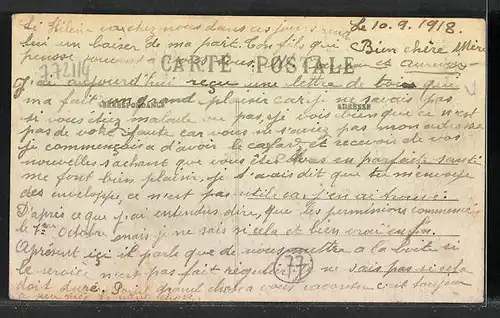 Si Hélène va chez nous dans ces jours
lui un baiser de ma part. Ton fils qui
pense
Le 10.9.1918.
Bien chère Mère
772114
CARTE POSTALE
CORRESPONDANCE
ADRESSE
J'ai aujourd'hui reçu une lettre de toi que
ma fait grand plaisir car je ne savais pas
si vous étiez malade ou pas, je vois bien que ce n'est
pas de votre faute car vous ne saviez pas mon adresse
je commençais a d'avoir le cafard et recevoir de vos
nouvelles sachant que vous êtes tous en parfaite santé
me font bien plaisir, je t'avais dit que tu m'envoye
des enveloppe, ce n'est pas utile car j'en ai trouvé.
D'après ce que j'ai entendu dire, que les permissions commence
le 1er Octobre mais je ne sais si cela et bien vrai enfin.
Aprésent ici il parle que de nous mettre a la boite si
le service n'est pas fait régulier je ne sais pas si cela
doit durer. Point grand chose a vous raconter c'est toujours
77